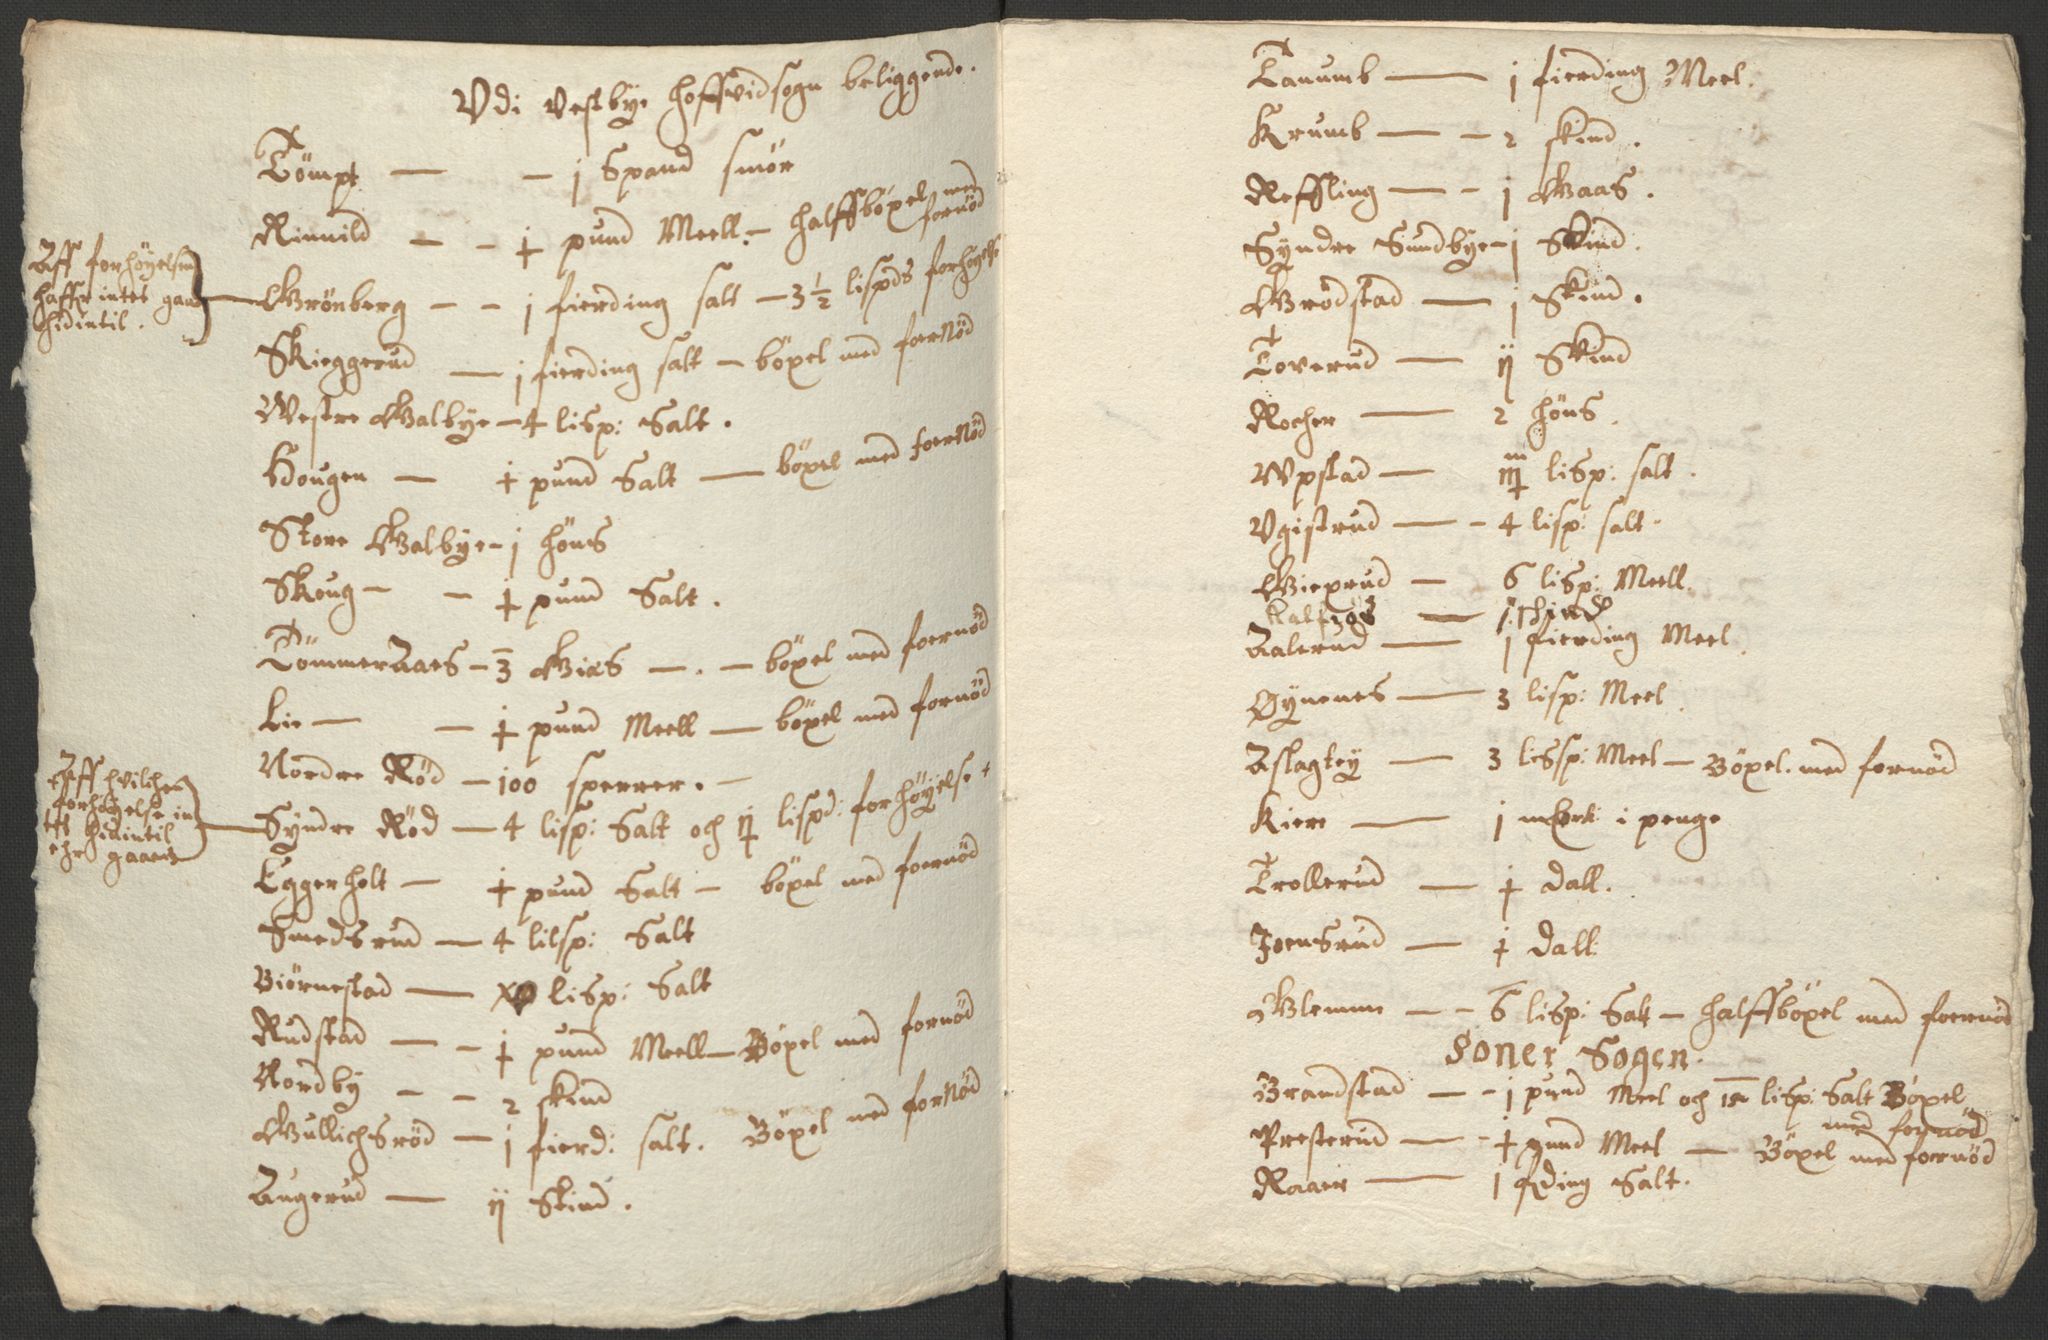 Vdi Vestbÿe hoffvidsogn beliggende.
Tömpt — – j Spand smör
Rinnild — – ɉ pund Meell. – halffböxel med fornöd
Aff forhöyelsen
haffr intet gaa
hidintil.
Grönberg – – j fierding salt – 3½ lispds forhöyelse
Skieggerud — j fierding salt – böxel med foernöd
Westre Galbÿe – 4 lisp: Salt.
Hougen — ɉ pund Salt — böxel med foernöd
Store Galbÿe – j höns
Skoug – – ɉ pund Salt.
Tömmer Aaes – 3 Gies —. – böxel med foernöd
Lie — – ɉ pund Meell — böxel med fornöd
Nordre Röd – 100 sperrer. –
Aff hvilchen
forhöyelse in
tet hidintil
ehr gaaen
Syndre Röd – 4 lisp: Salt och ij lispd: forhöyelse
Eggerholt – ɉ pund Salt – böxel med foernöd
Smedsrud — 4 lilsp: Salt
Biörnestad — x lisp: Salt
Rudstad — – ɉ pund Meell – Böxel med fornöd
Nordby – – 2 skind
Gullichsröd – j fierd: salt. Böxel med fornöd
Augerud — ij Skind.
Tanumb — j fierding Meel.
Krumb — – 2 skind.
Reffling — – j Gaas.
Syndre Sundbÿe – j Skind.
Grödstad — j Skind.
Toverud — ij Skind
Rocher — 2 höns.
Wpstad — iij lisp: salt.
Vgistrud — – 4 lisp: salt.
Gieprud — 6 lisp: Meell.
Kalfzös — 1 schind
Aalerud — j fierding Meel.
Øÿenes — 3 lisp: Meel.
Aslagtey — 3 lissp: Meel – Böxel. med fornöd
Kiere — j mark i penge
Trollerud — ɉ dall.
Joensrud — ɉ dall:
Glemme – – 6 lisp: Salt – halffböxel med foernöd
Soner Sogen.
Brandstad — – j pund Meel och lisp: Salt Böxel
med fornöd
Presterud — – ɉ pund Meel — Böxel med foernöd
Raaer — 1 fding Salt.